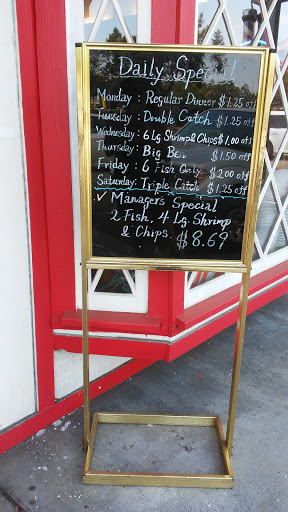 Daily Special
Monday : Regular Dinner $1.25 off
Tuesday : Double Catch $1.25 off
Wednesday : 6 Lg Shrimp & Chips $1.00 off
Thursday : Big Ben $1.50 off
Friday : 6 Fish Only $2.00 off
Saturday : Triple Catch $1.25 off
✓ Manager's Special
2 Fish, 4 Lg. Shrimp
& Chips. $8.69